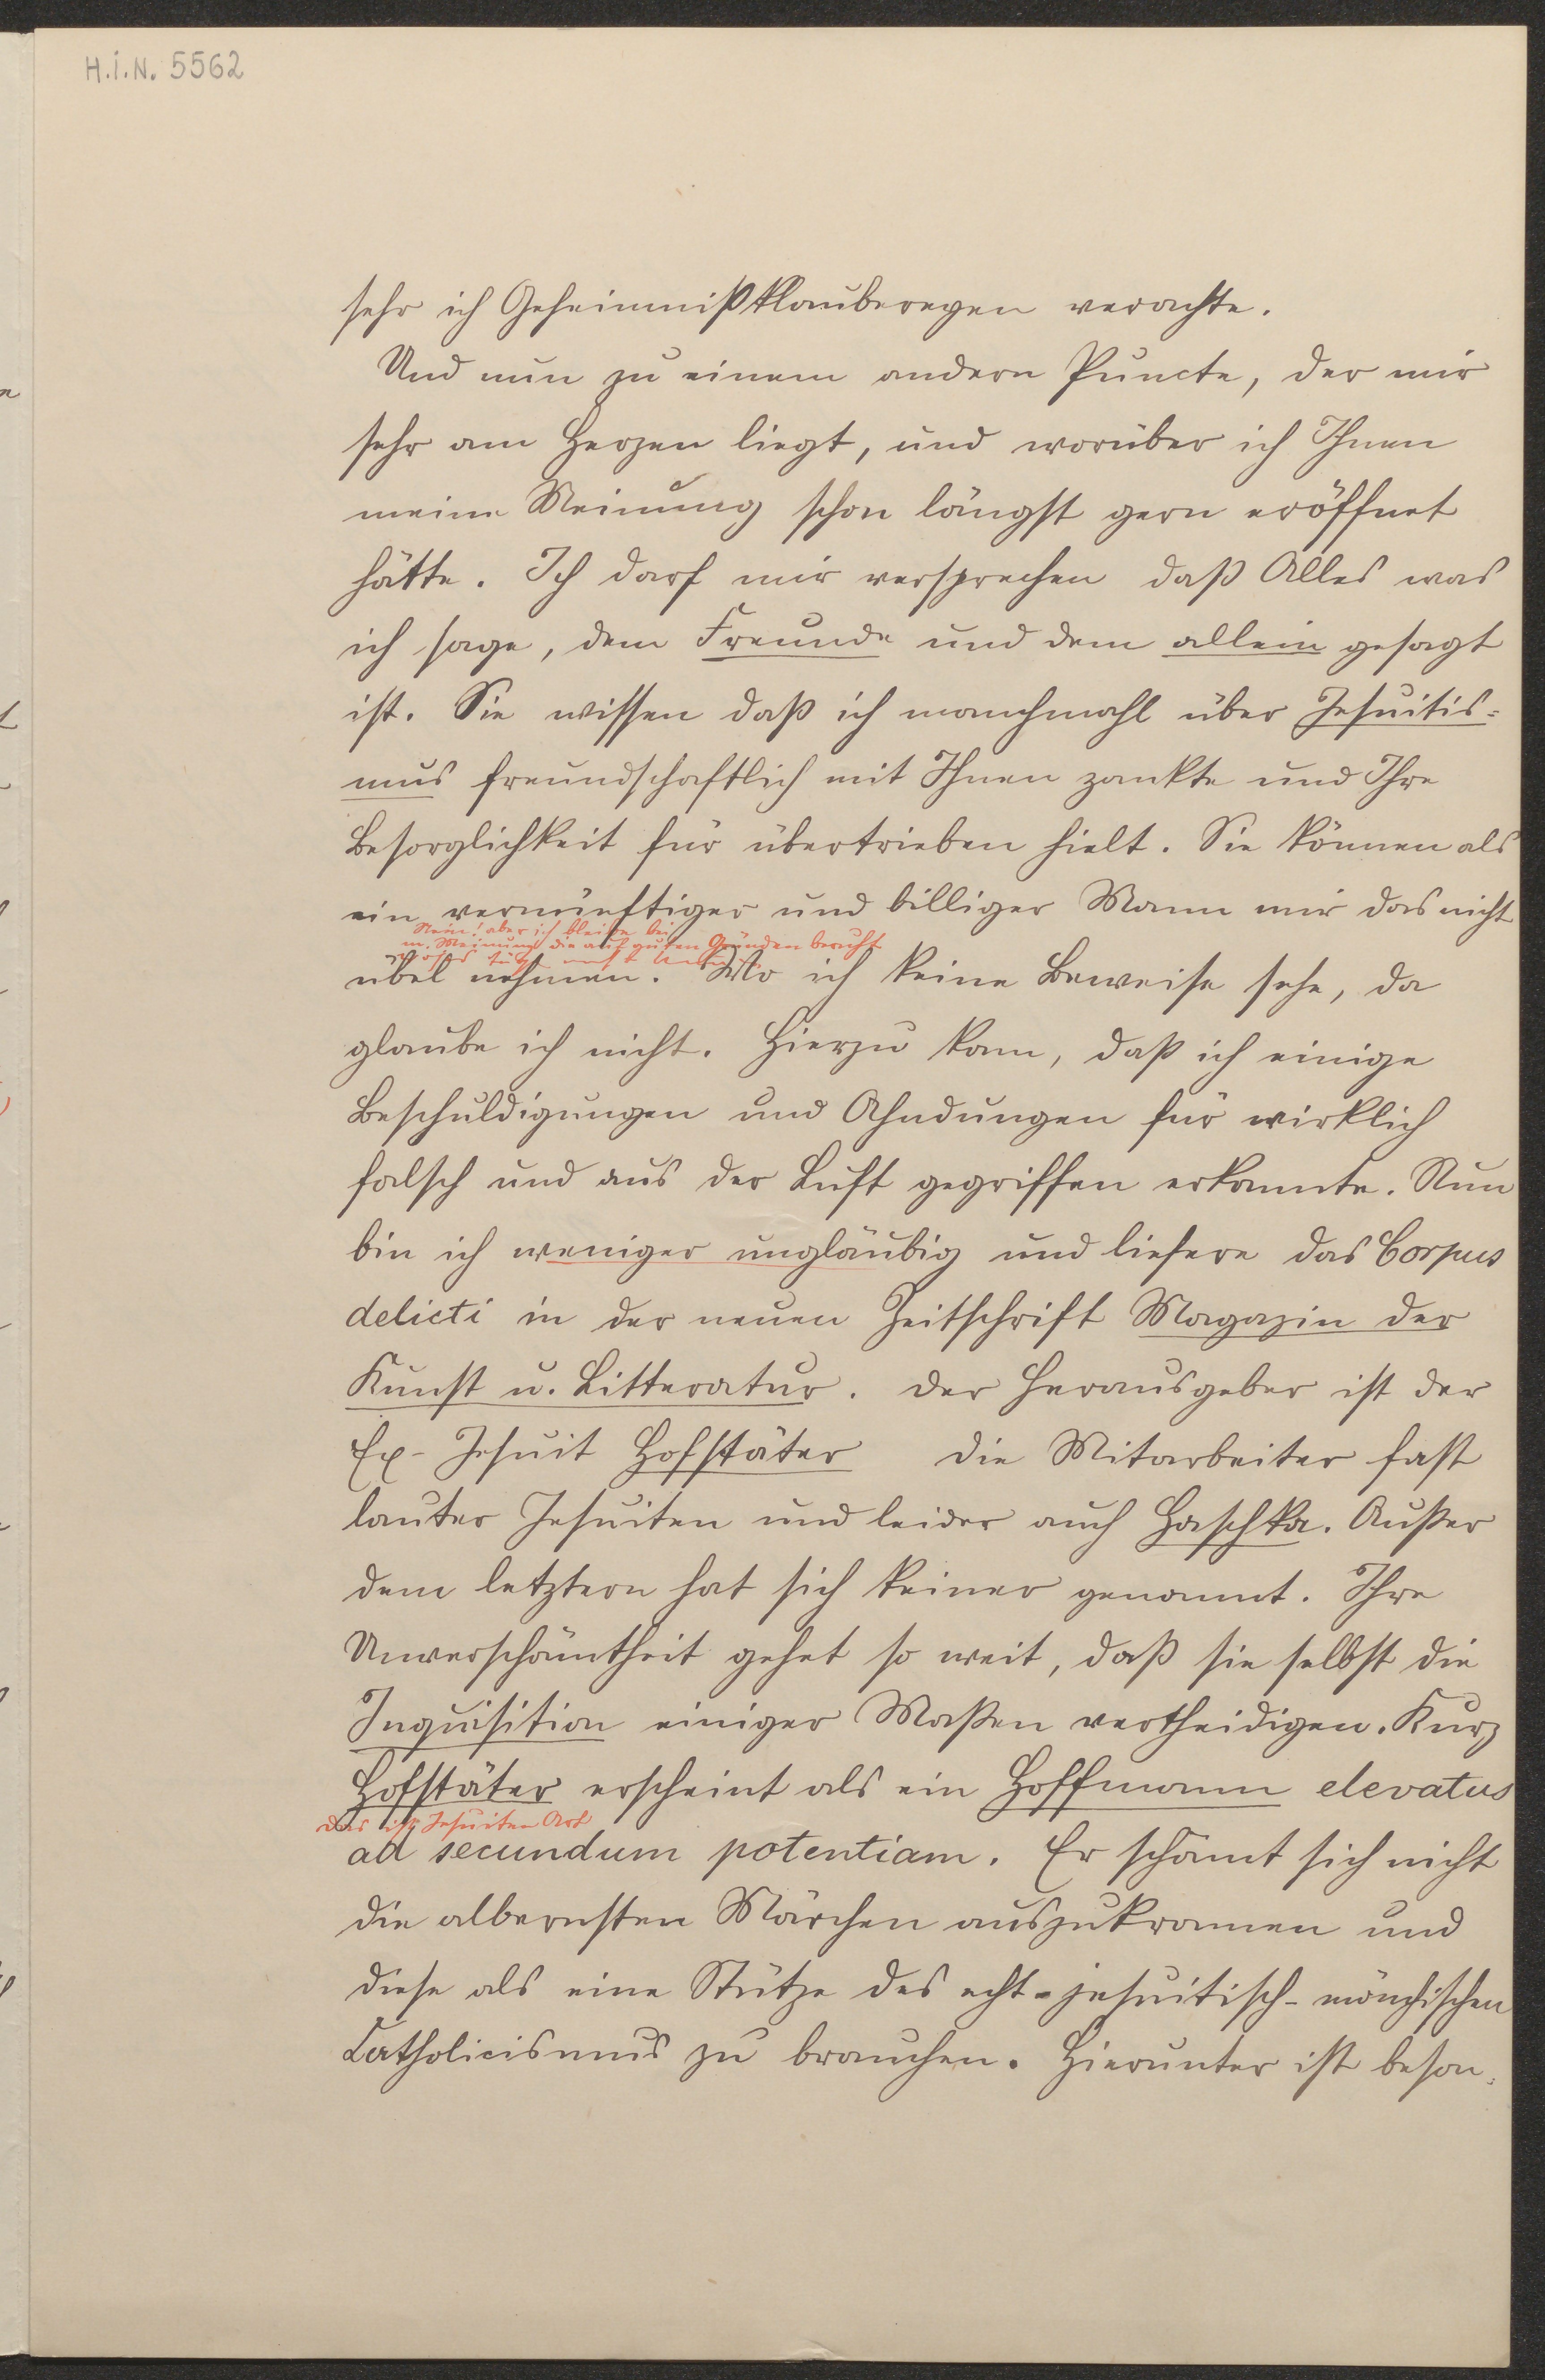 H.I.N. 5562
sehr ich Geheimnißklaubereyen verachte.
Und nun zu einem andern Puncte, der mir
sehr am Herzen liegt, und worüber ich Ihnen
meine Meinung schon längst gern eröffnet
hätte. Ich darf mir versprechen daß Alles was
ich sage, dem Freunde und dem allein gesagt
ist. Sie wissen daß ich manchmahl über Jesuitis-
mus freundschaftlich mit Ihnen zankte und Ihre
Besorglichkeit für übertrieben hielt. Sie können als
ein vernünftiger und billiger Mann mir das nicht
Nein! aber ich bleibe bei
m. Meinung die auf guten Gründen beruht
übel nehmen. Wo ich keine Beweise sehe, da
glaube ich nicht. Hierzu kam, daß ich einige
Beschuldigungen und Ahndungen für wirklich
falsch und aus der Luft gegriffen erkannte. Nun
bin ich weniger ungläubig und liefere das Corpus
delicti in der neuen Zeitschrift Magazin der
Kunst u. Litteratur. der Herausgeber ist der
Ex-Jesuit Hofstäter die Mitarbeiter fast
lauter Jesuiten und leider auch Haschka. Außer
dem letztern hat sich keiner genannt. Ihre
Unverschämtheit gehet so weit, daß sie selbst die
Inquisition einiger Maßen vertheidigen. Kurz
Hofstäter erscheint als ein Hoffmann elevatus
das ist Jesuiten Art
ad secundum potentiam. Er schämt sich nicht
die albernsten Märchen auszukramen und
diese als eine Stütze des echt-jesuitisch-mönchischen
Catholicismus zu brauchen. Hierunter ist beson-